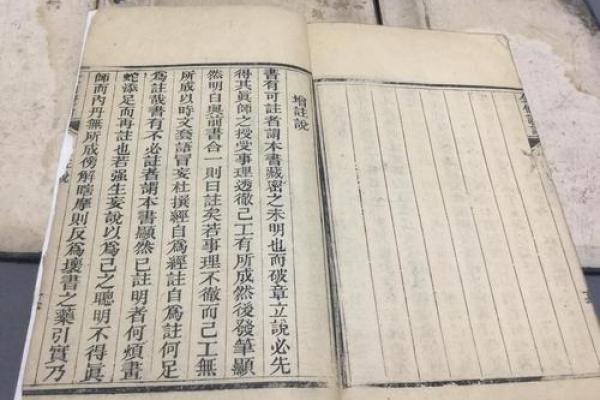 增註說
書有可註者謂本書藏密之未明也而破章立說必先
得其眞師之授受事理透徹己工有所成然後發筆顯
然明白與前書合一則曰註矣若事理不徹而己工無
所成以時文套語冒妄杜撰經自爲經註自爲註何足
爲註哉書有不必註者謂本書顯然已註明者何煩畫
蛇添足而再註也若强生妄說以爲己之聰明不得眞
師而內丹無所成傍解瞎摩則反爲壞書之藥引實乃